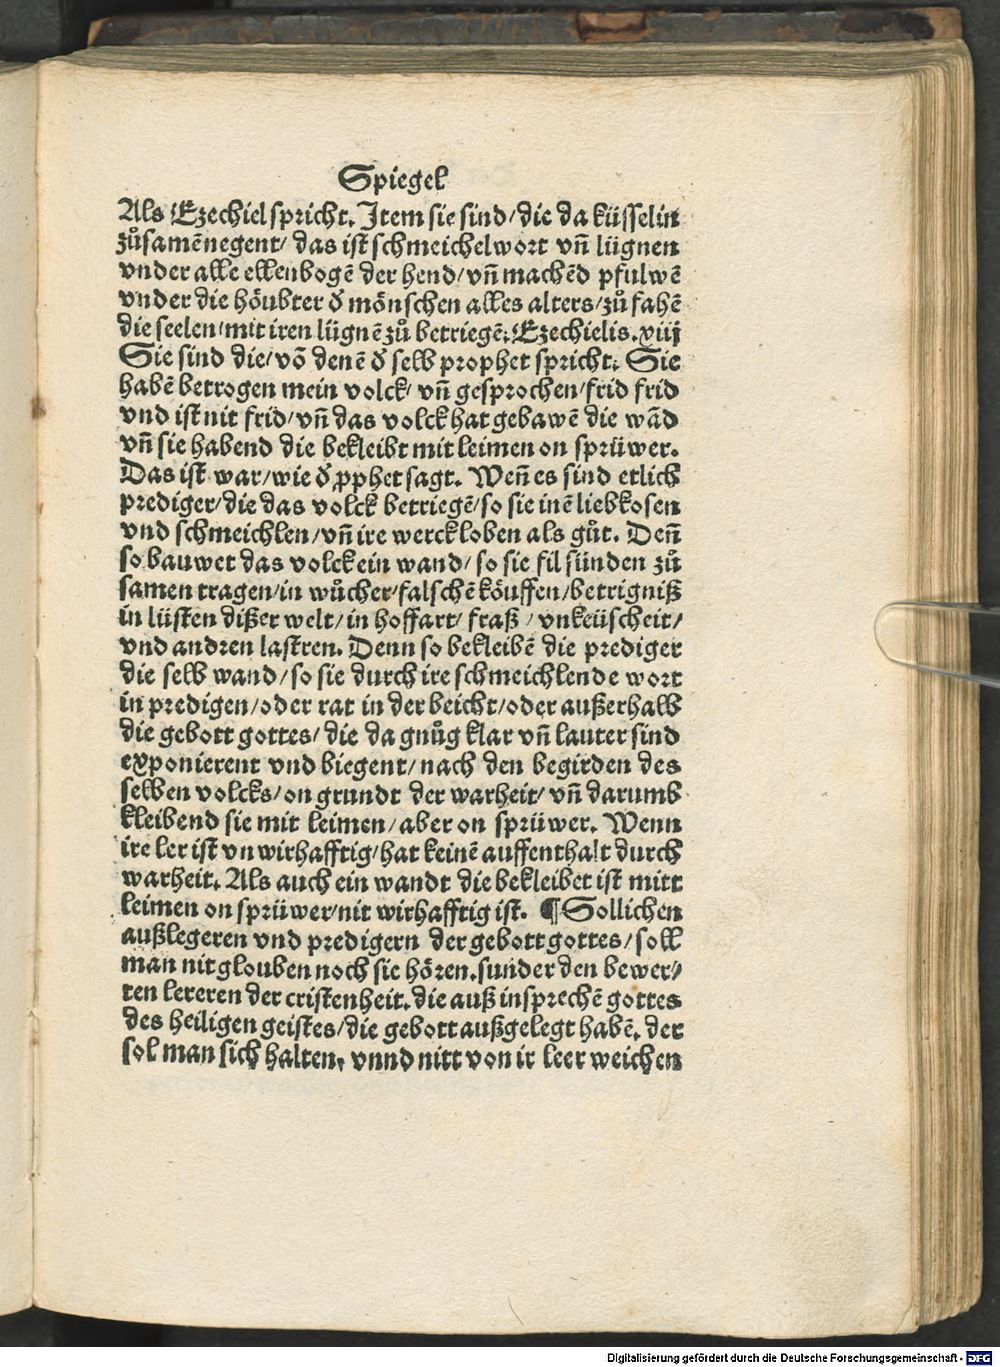 Spiegel
Als Ezechiel spricht. Item sie sind/ die da küsselin
zůsamẽnegent/ das ist schmeichelwort vñ lügnen
vnder alle ellenbogẽ der hend/ vñ machẽd pfulwẽ
vnder die höubter ď mönschen alles alters/ zů fahẽ
die seelen/ mit iren lügnẽ zů betriegẽ. Ezechielis. xiij
Sie sind die/ võ denẽ ď selb prophet spricht. Sie
habẽ betrogen mein volck/ vñ gesprochen/ frid frid
vnd ist nit frid/ vñ das volck hat gebawẽ die wãd
vñ sie habend die bekleibt mit leimen on sprüwer.
Das ist war/ wie ď ꝓphet sagt. Weñ es sind etlich
prediger/ die das volck betriegẽ/ so sie inẽ liebkosen
vnd schmeichlen/ vñ ire werck loben als gůt. Deñ
so bauwet das volck ein wand/ so sie fil sünden zů
samen tragen/ in wůcher/ falschẽ köuffen/ betrigniß
in lüsten dißer welt/ in hoffart/ fraß/ vnkeüscheit/
vnd andren lastren. Denn so bekleibẽ die prediger
die selb wand/ so sie durch ire schmeichlende wort
in predigen/ oder rat in der beicht/ oder außerhalb
die gebott gottes/ die da gnůg klar vñ lauter sind
exponierent vnd biegent/ nach den begirden des
selben volcks/ on grundt der warheit/ vñ darumb
kleibend sie mit leimen/ aber on sprüwer. Wenn
ire ler ist vnwirhafftig/ hat keinẽ auffenthalt durch
warheit. Als auch ein wandt die bekleibet ist mitt
leimen on sprüwer/ nit wirhafftig ist. ¶ Sollichen
außlegeren vnd predigern der gebott gottes/ soll
man nit glouben noch sie hören. sunder den bewer⸗
ten lereren der cristenheit. die auß insprechẽ gottes
des heiligen geistes/ die gebott außgelegt habẽ. der
sol man sich halten, vnnd nitt von ir leer weichen
Digitalisierung gefördert durch die Deutsche Forschungsgemeinschaft - DFG